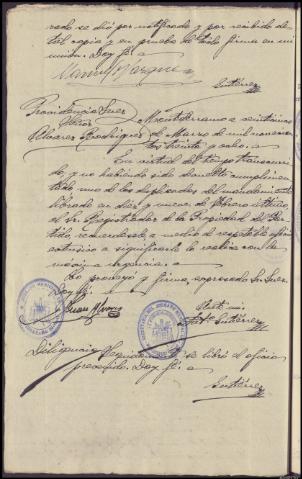 rado se dió por notificado y por recibido de
tal copia y en prueba de todo firma en mi
unión. Doy fé. =
Manuel Vazquez
Gutiérrez
Providencia Juez
Señor
Alvarez Rodríguez
Monterramo a veintiuno
de Marzo de mil novecien
tos treinta y ocho. =
En virtud del tiempo transcurri
do, y no habiendo sido devuelto cumplimen
tado uno de los duplicados del mandamiento
librado en diez y nueve de Febrero último
al Sr. Registrador de la Propiedad del Par
tido, recuérdesele a medio de respetable oficio
atentivo a significarle la realice con la
máxima urgencia. =
Lo proveyó y firma, expresado Sr. Juez
doy fé. =
Alvarez
Ante mi
Gutiérrez
Diligencia
Seguidamente se libró el oficio
precedido. Doy fé. =
Gutiérrez